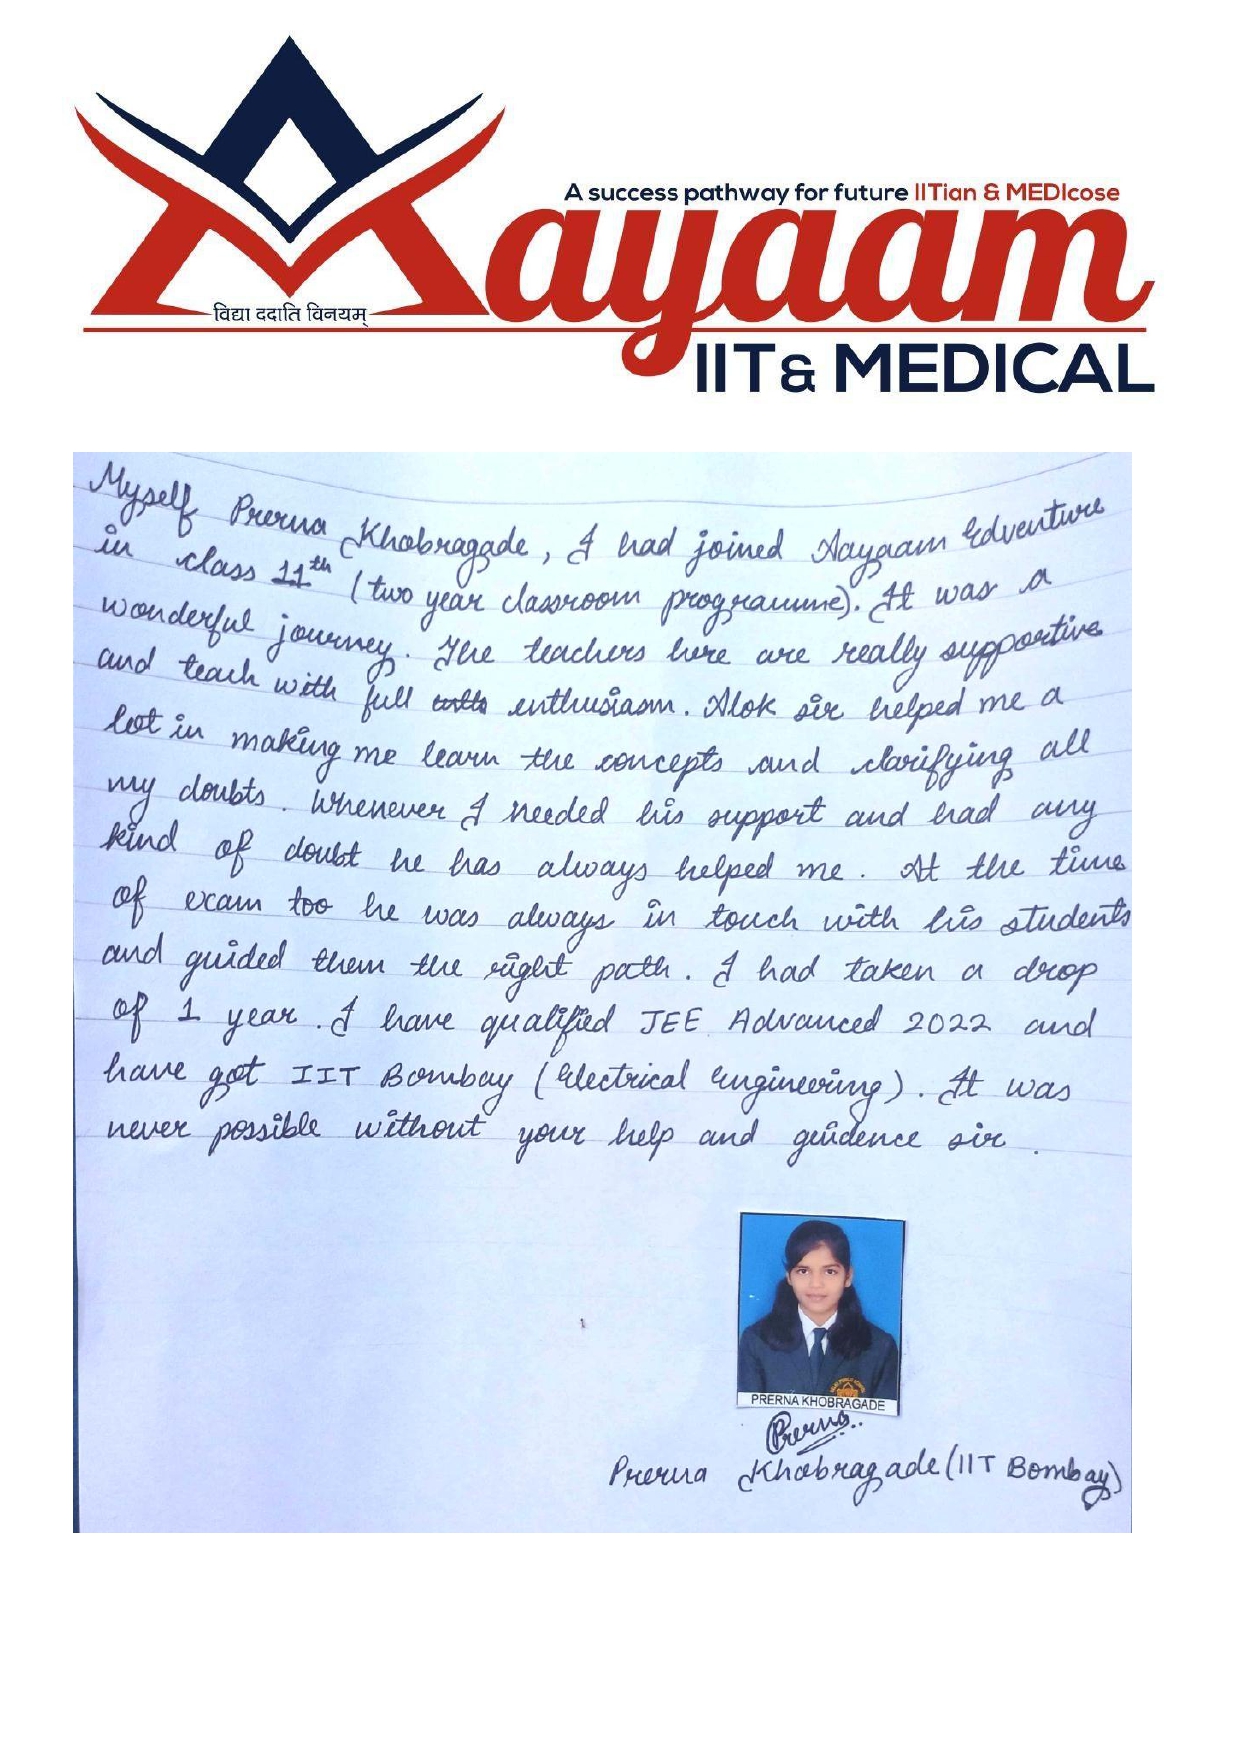 A success pathway for future IITian & MEDIcose
Aayaam
विद्या ददाति विनयम्
IIT & MEDICAL
Myself Prerna Khobragade, I had joined Aayaam Edventure
in class 11th (two year classroom programme). It was a
wonderful journey. The teachers here are really supportive
and teach with full enthusiasm. Alok sir helped me a
lot in making me learn the concepts and clarifying all
my doubts. Whenever I needed his support and had any
kind of doubt he has always helped me. At the time
of exam too he was always in touch with his students
and guided them the right path. I had taken a drop
of 1 year. I have qualified JEE Advanced 2022 and
have got IIT Bombay (Electrical Engineering). It was
never possible without your help and guidence sir.
PRERNA KHOBRAGADE
Prerna
Prerna Khobragade (IIT Bombay)